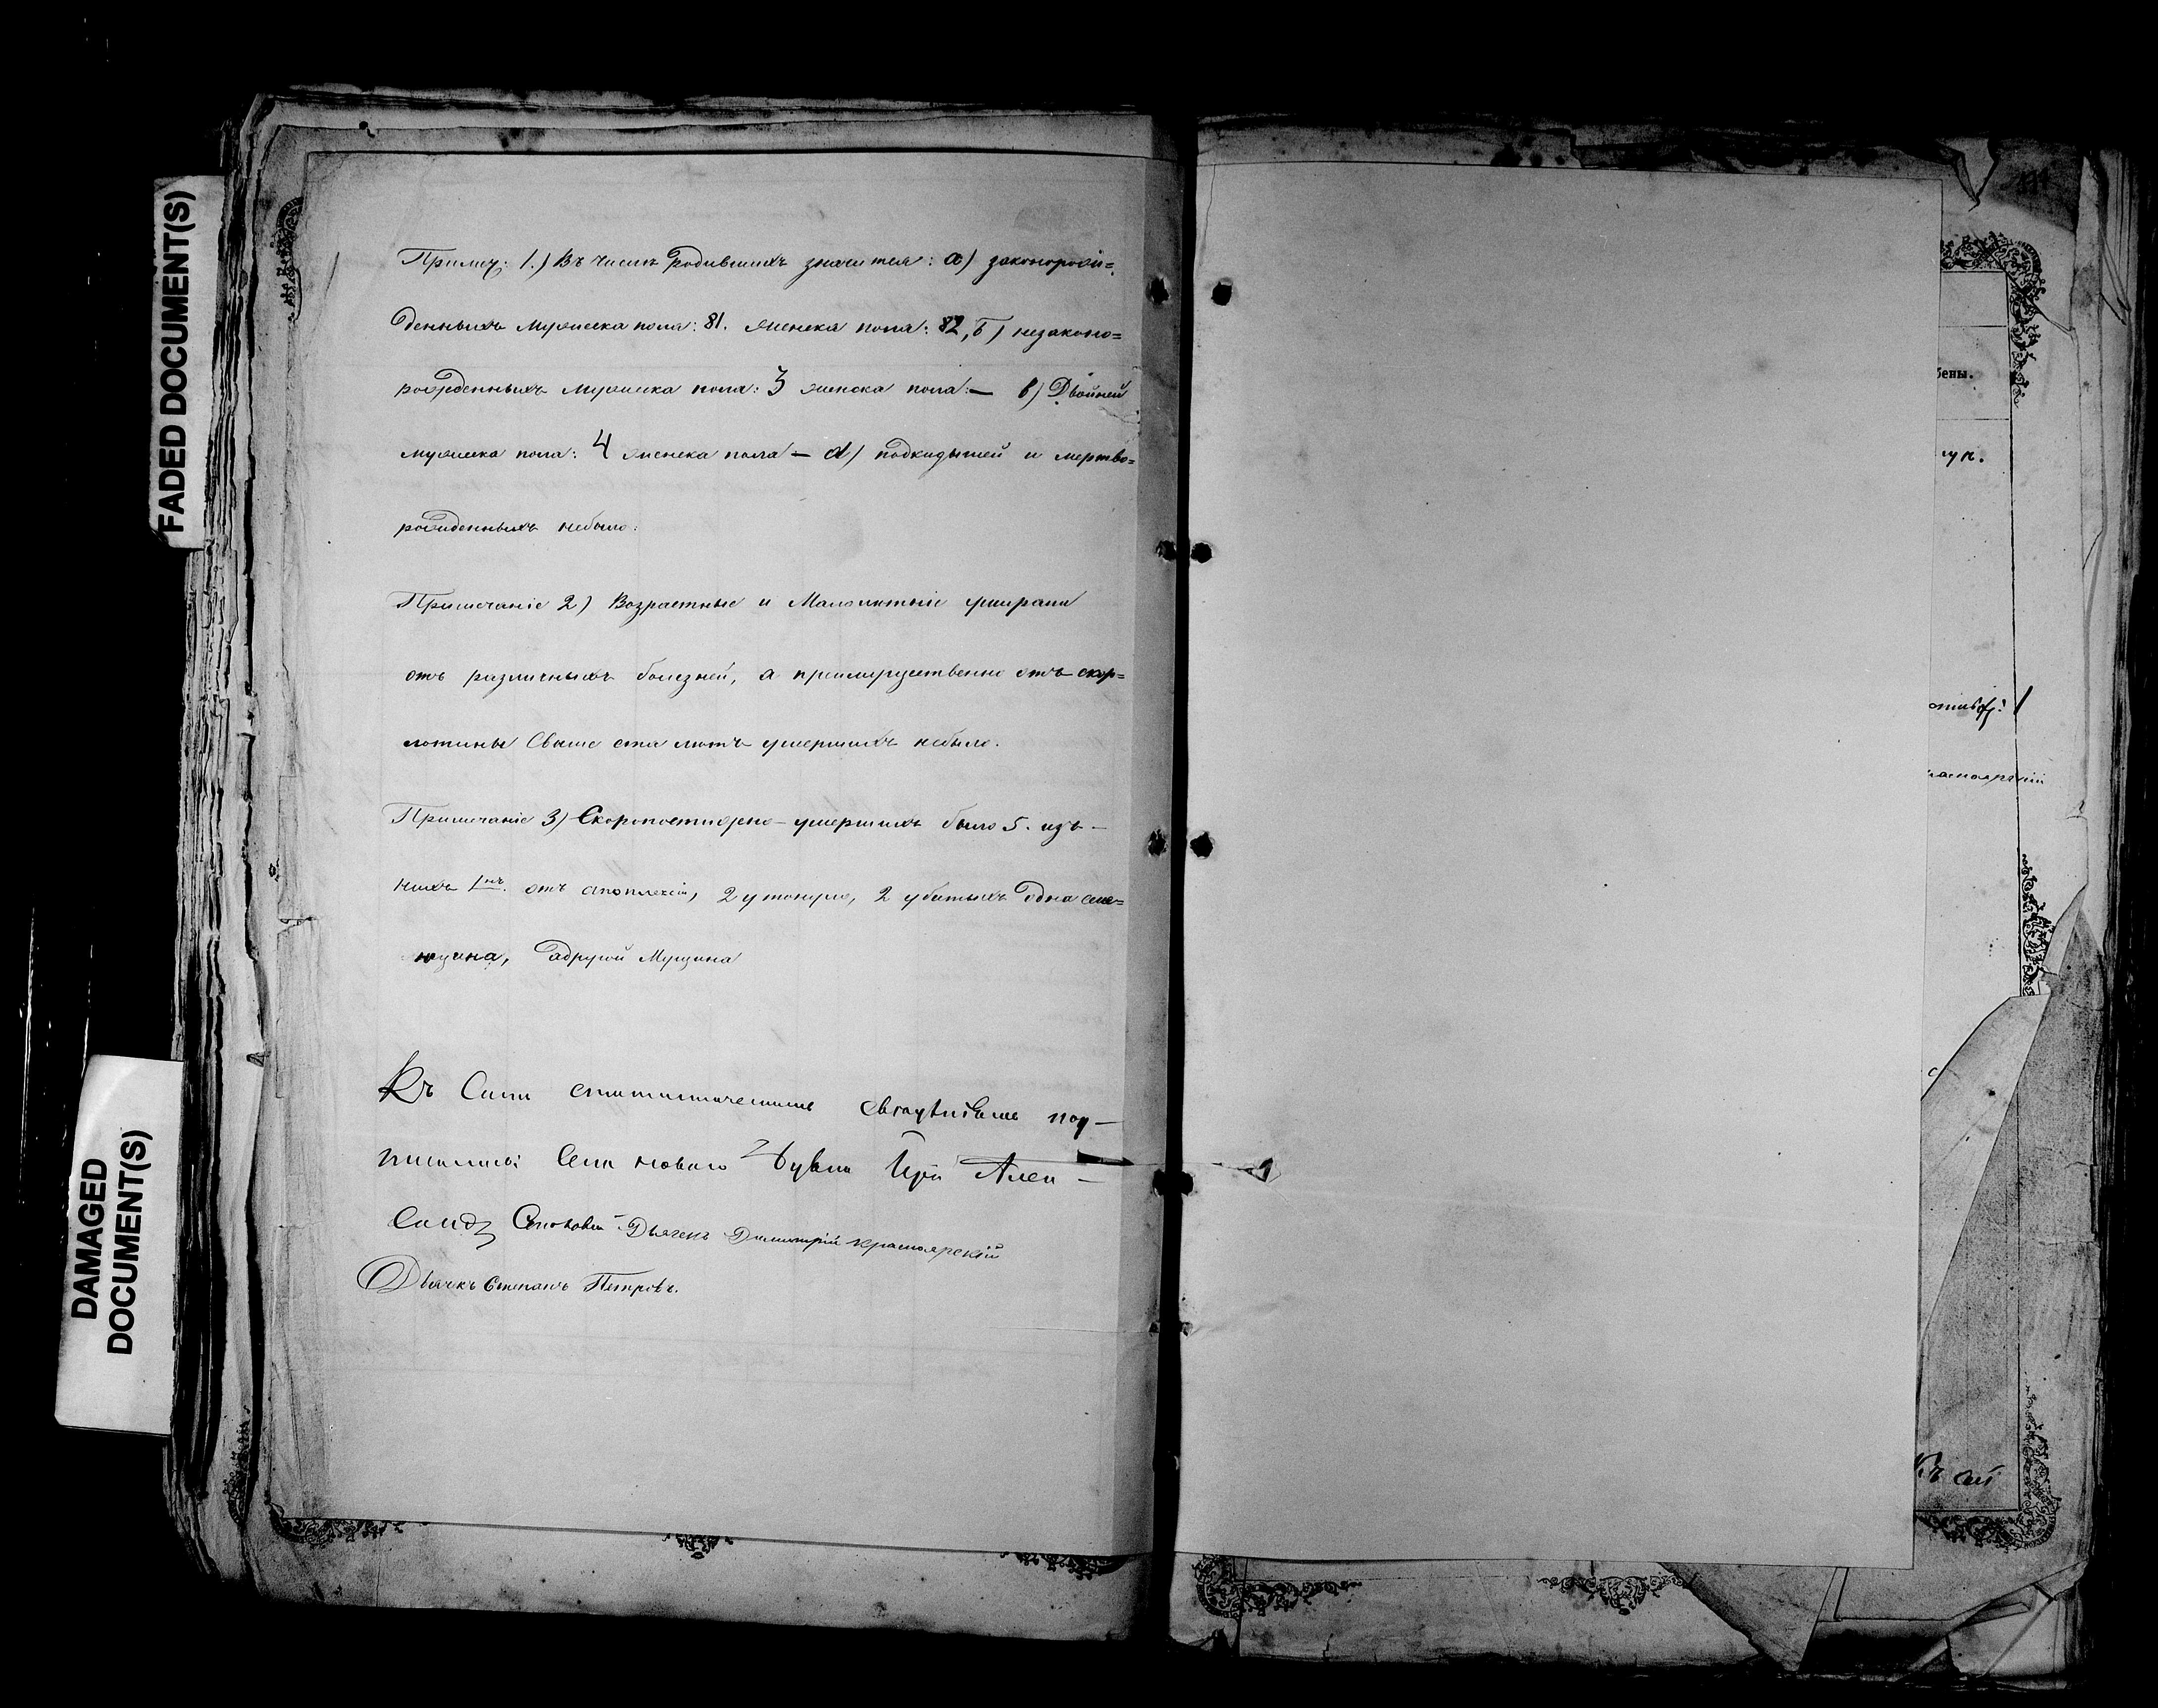 FADED DOCUMENT(S)
DAMAGED
DOCUMENT(S)
Примѣч: 1.) Въ числѣ родившихъ значится: а) законорож=
денныхъ мужеска пола: 81. женска пола: 82, б) незаконо=
рожденныхъ мужеска пола: 3 женска пола: — в) Двойней
мужеска пола: 4 женска пола — d) подкидышей и мертво=
рожденныхъ небыло:
Примѣчаніе 2) Возрастные и Малолѣтніе умирали
отъ различныхъ болезней, а преимущественно отъ скор=
лотины Свыше ста лѣтъ умершихъ небыло.
Примѣчаніе 3) Скоропостижно-умершихъ было 5. изъ-
нихъ 1нъ. отъ апоплексіи, 2 утонуло, 2 убитыхъ одна
адругой Мущина
Къ Симъ статистическимъ под-
писались: Села Новаго Іерей Алек-
Дьячекъ Димитрій Красноярскій
Дьячкъ Степанъ Петровъ.
бены.
Къ сей